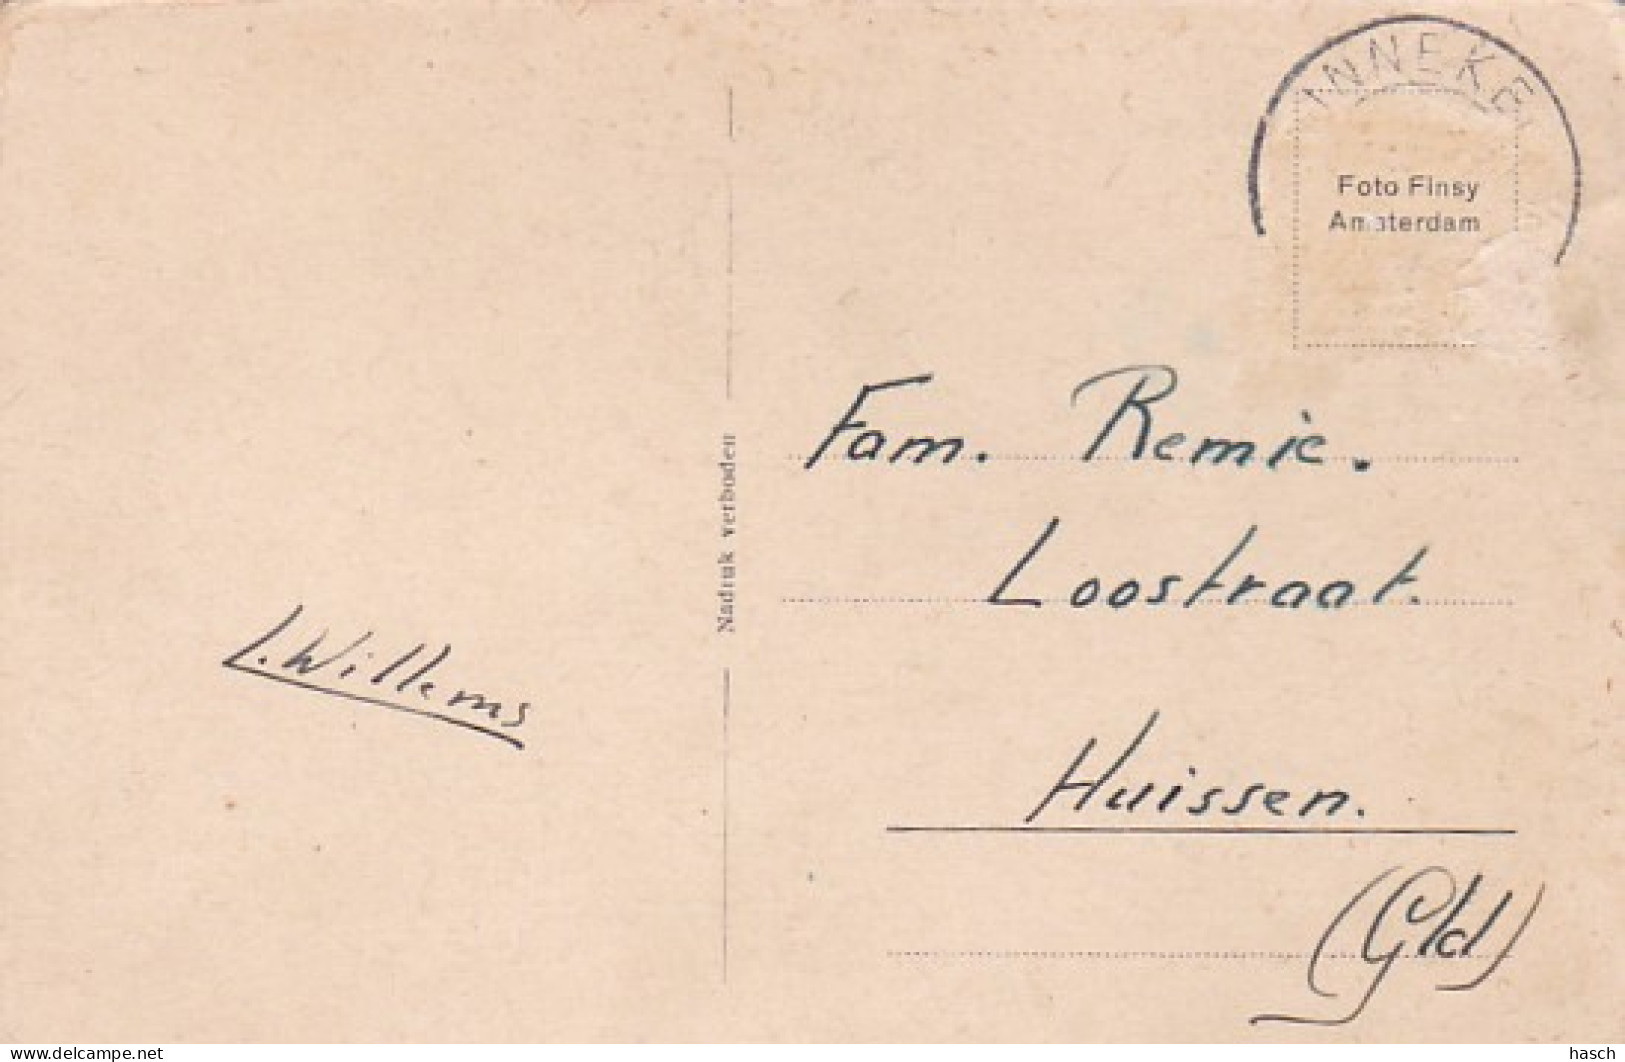 INNEKE
Foto Finsy
Amsterdam
Fam. Remie.
Loostraat.
Huissen.
(Gld)
Nadruk verboden
L. Willems
www.delcampe.net
hasch